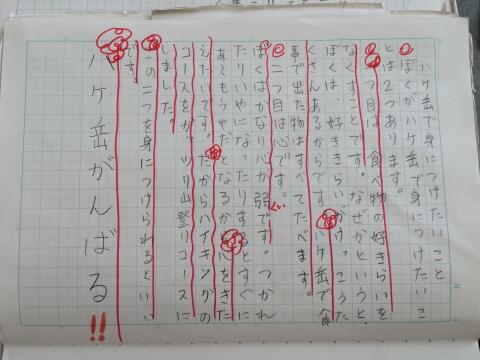 八ケ岳で身につけたいこと
ぼくが八ケ岳で身につけたいこ
とは2つあります。
一つ目は、食べ物の好きらいを
なくすことです。なぜかというと、
ぼくは、好ききらいが
くさんあるからです。八ケ岳で食
事で出た物はすべてたべます。
二つ目は心です。
ぼくはかなり心が弱いです。つかれ
たりいやになったりするとすぐに
あてもうやだとなるから心をきた
えたいです。だからハイキングの
コースをガッツリ山登りコースに
しました。
この二つを身につけられるといい
です。
八ケ岳がんばる!!